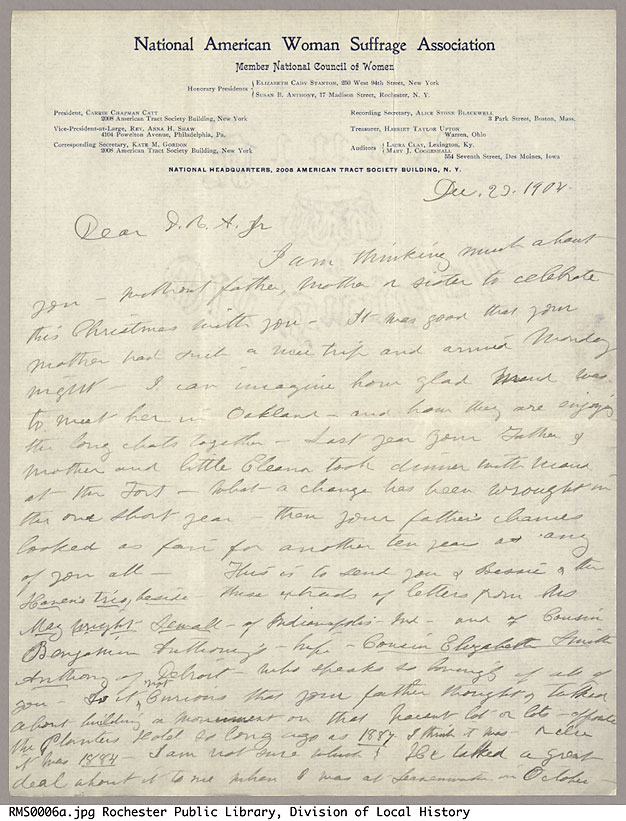 National American Woman Suffrage Association
Member National Council of Women
Honorary Presidents { ELIZABETH CADY STANTON, 250 West 94th Street, New York
SUSAN B. ANTHONY, 17 Madison Street, Rochester, N. Y.
President, CARRIE CHAPMAN CATT
2008 American Tract Society Building, New York
Vice-President-at-Large, REV. ANNA H. SHAW
4104 Powelton Avenue, Philadelphia, Pa.
Corresponding Secretary, KATE M. GORDON
2008 American Tract Society Building, New York
Recording Secretary, ALICE STONE BLACKWELL
3 Park Street, Boston, Mass.
Treasurer, HARRIET TAYLOR UPTON
Warren, Ohio
Auditors { LAURA CLAY, Lexington, Ky.
MARY J. COGGESHALL
554 Seventh Street, Des Moines, Iowa
NATIONAL HEADQUARTERS, 2008 AMERICAN TRACT SOCIETY BUILDING, N. Y.
Dec. 23. 1902
Dear D. R. A. Jr
I am thinking much about
you - without father, mother or sister to celebrate
this Christmas with you - It was good that your
mother had such a nice trip and arrived Monday
night - I can imagine how glad Maud was
to meet her in Oakland - and how they are enjoying
the long chats together - Last year your Father &
mother and little Eleanor took dinner with Maud
at the Fort - What a change has been wrought in
the one short year - then your father's chances
looked as fair for another ten year as any
of you all - This is to send you & Bessie & the
Haven's trio, beside - these extracts of letters from Mrs
May Wright Sewall - of Indianapolis - Ind - and of Cousin
Benjamin Anthony's - wife - Cousin Elizabeth Smith
Anthony of Detroit - who speaks so lovingly of all of
you - Is it not curious that your father thought & talked
about building a monument on that vacant lot or lots - opposite
the Planters Hotel so long ago as 1887 I think it was - or else
it was 1884 - I am not sure which! He talked a great
deal about it to me when I was at Leavenworth in October -
RMS0006a.jpg Rochester Public Library, Division of Local History